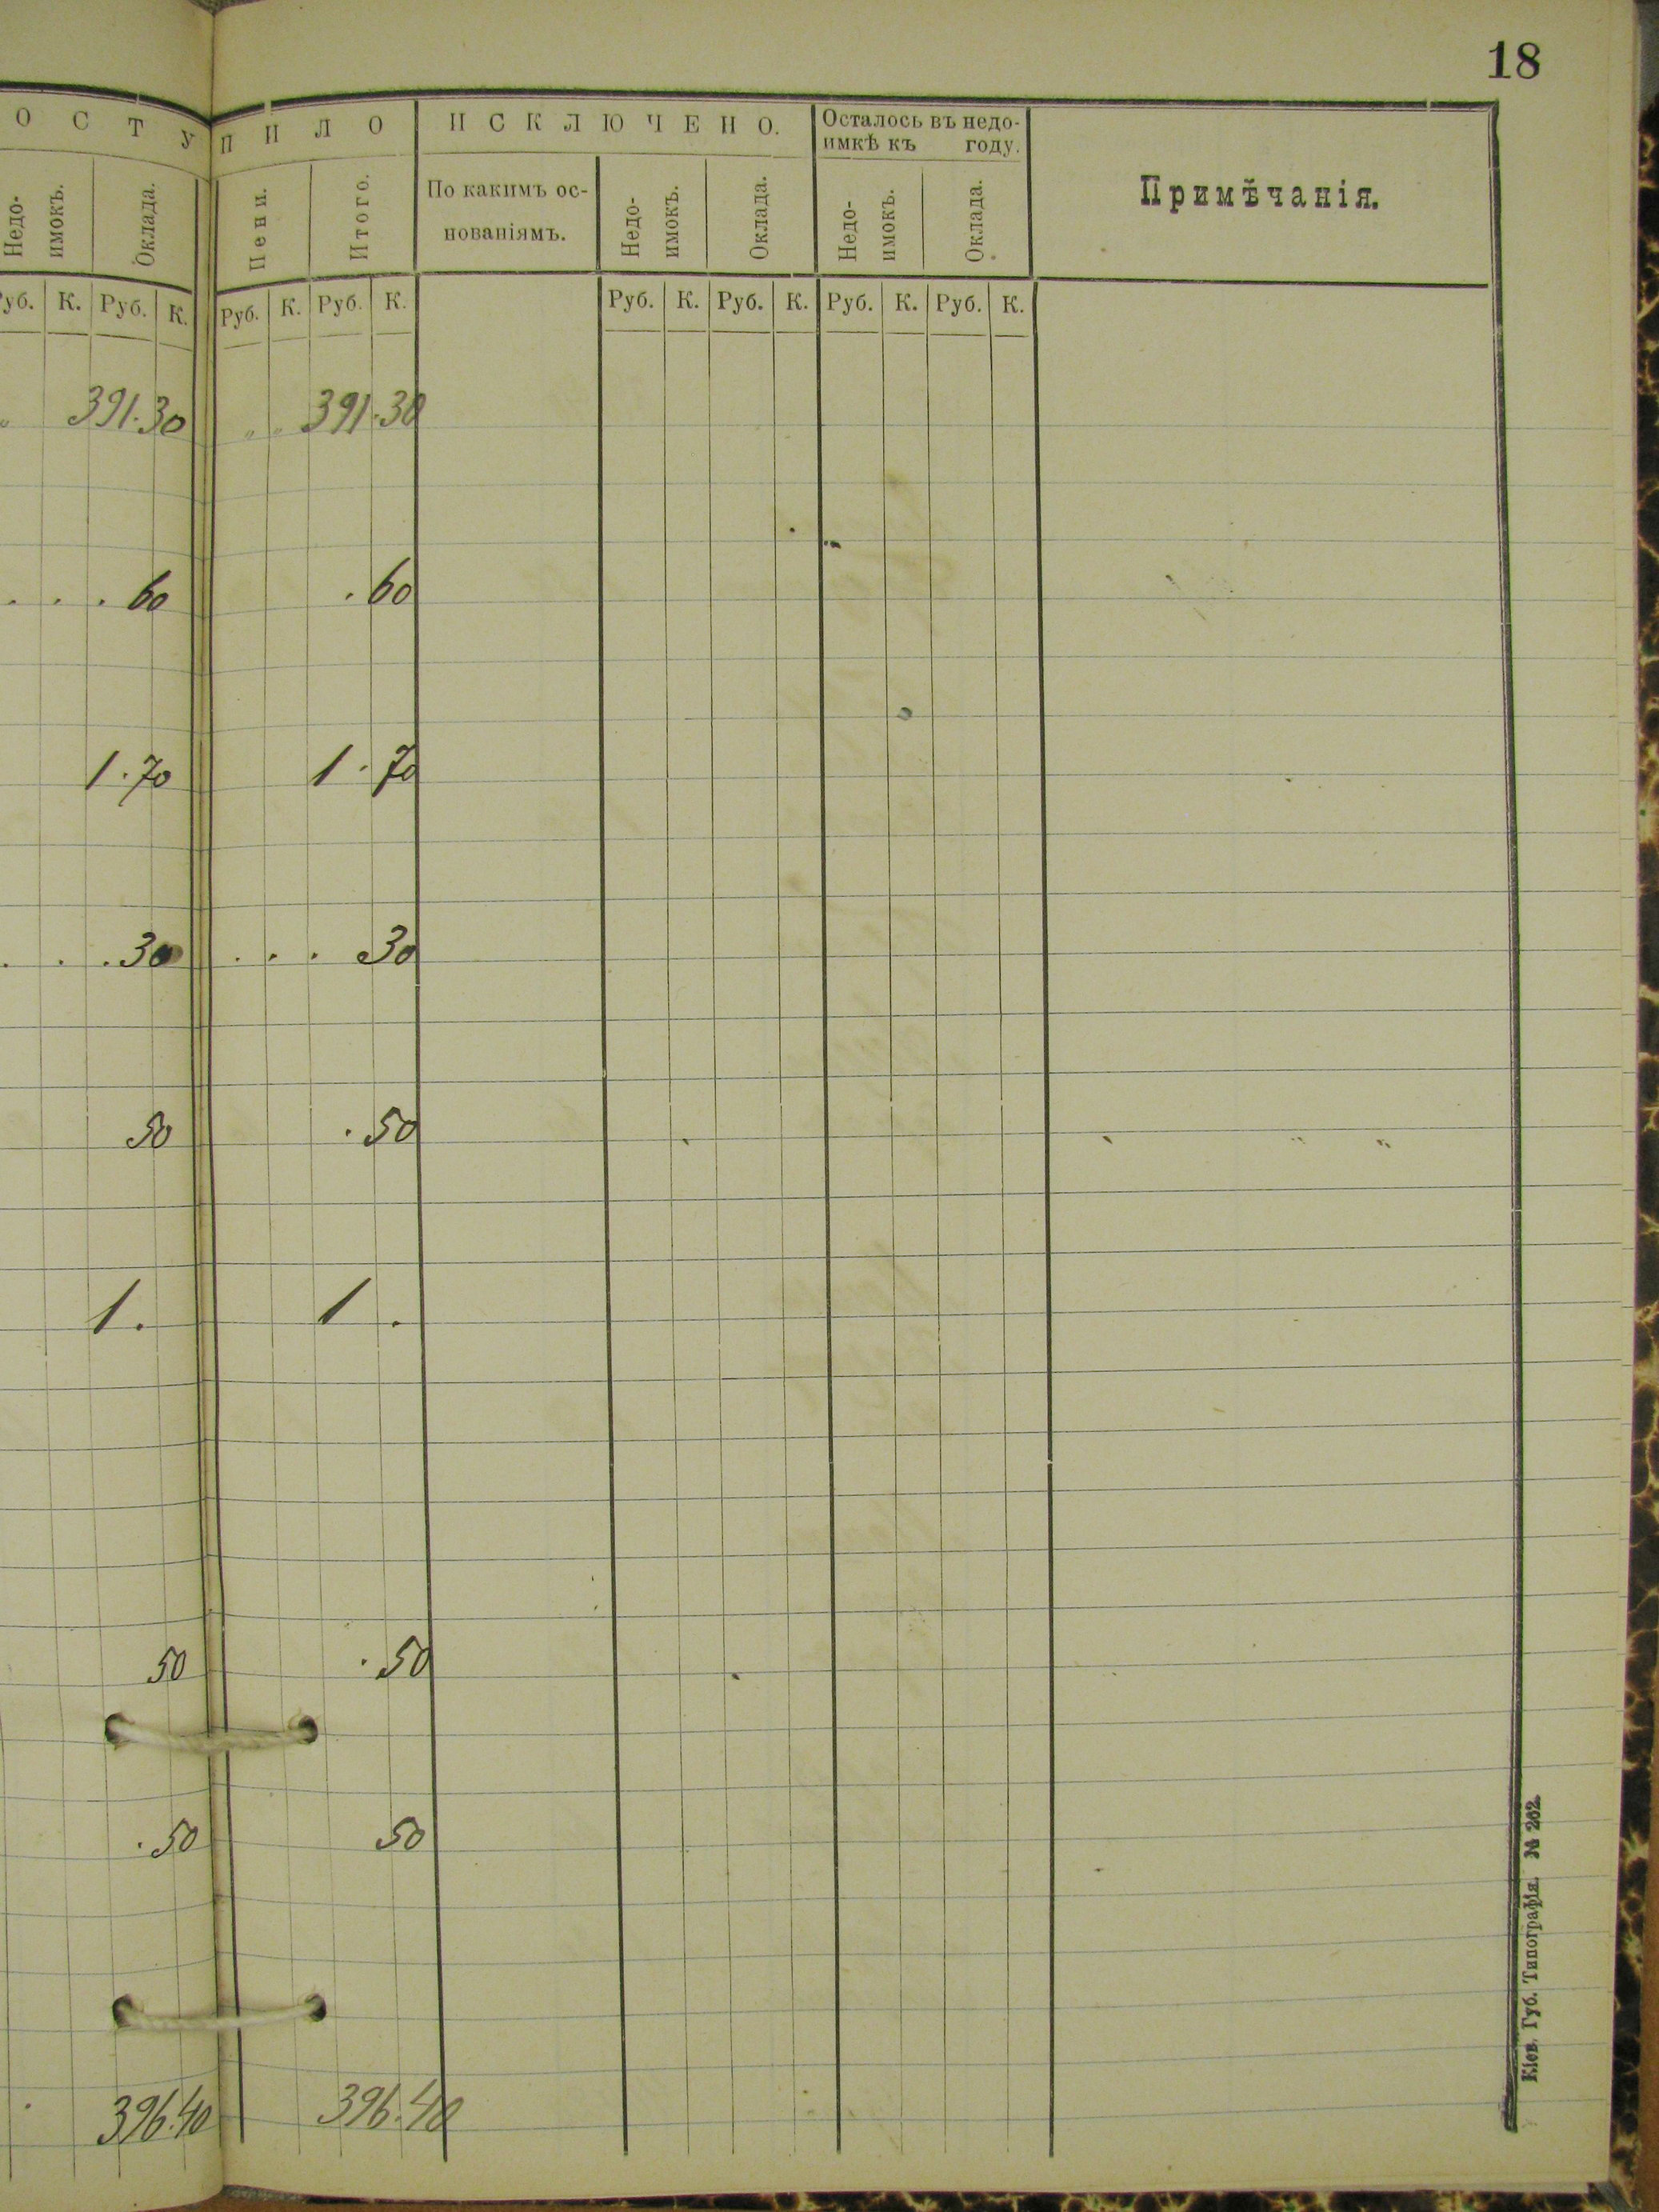 18
О С Т У П И Л О
И С К Л Ю Ч Е Н О.
Осталось въ недо-
имкѣ къ году.
Примѣчанія.
Недо-
имокъ.
Оклада.
Пени.
Итого.
По какимъ ос-
нованіямъ.
Недо-
имокъ.
Оклада.
Недо-
имокъ.
Оклада.
Руб. К. Руб. К. Руб. К. Руб. К. Руб. К. Руб. К. Руб. К. Руб. К.
„ 391.30 „ „ 391.30
. . . 60 . 60
1.70 1.70
. . . 30 . . . 30
50 . 50
1 . 1 .
50 . 50
. 50 50
. 396.40 396.40
Кіев. Губ. Типографія. № 262.